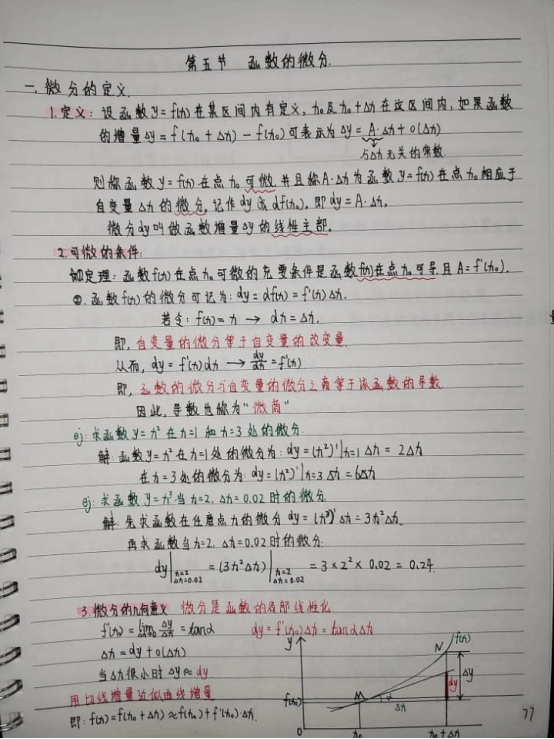 第五节 函数的微分.
一.微分的定义.
1.定义: 设函数y=f(x)在某区间内有定义, x₀及x₀+Δx在这区间内, 如果函数
的增量Δy=f(x₀+Δx)-f(x₀)可表示为Δy=A·Δx+o(Δx)
与Δx无关的常数.
则称函数y=f(x)在点x₀可微, 并且称A·Δx为函数y=f(x)在点x₀相应于
自变量Δx的微分, 记作dy或df(x₀), 即dy=A·Δx.
微分dy叫做函数增量Δy的线性主部.
2.可微的条件:
定理: 函数f(x)在点x₀可微的充要条件是函数f(x)在点x₀可导且A=f'(x₀).
②.函数f(x)的微分可记为: dy=df(x)=f'(x)Δx.
若令: f(x)=x → dx=Δx.
即, 自变量的微分等于自变量的改变量.
从而, dy=f'(x)dx → dy/dx=f'(x)
即, 函数的微分与自变量的微分之商等于该函数的导数
因此, 导数也称为"微商"
ej: 求函数y=x²在x=1和x=3处的微分.
解: 函数y=x²在x=1处的微分为: dy=(x²)'|x=1 Δx = 2Δx
在x=3处的微分为: dy=(x²)'|x=3 Δx=6Δx
ej: 求函数y=x³当x=2, Δx=0.02时的微分.
解: 先求函数在任意点x的微分 dy=(x³)'Δx=3x²Δx.
再求函数当x=2, Δx=0.02时的微分.
dy|x=2 Δx=0.02 =(3x²Δx)|x=2 Δx=0.02 =3×2²×0.02=0.24.
3.微分的几何意义 微分是函数的局部线性化
f'(x)=lim Δx→0 Δy/Δx=tanα dy=f'(x₀)Δx=tanαΔx
Δx=dy+o(Δx)
当Δx很小时Δy≈dy
用切线增量近似曲线增量
即: f(x)=f(x₀+Δx)≈f(x₀)+f'(x₀)·Δx.
y
N
f(x)
Δy
dy
f(x₀)
M
Δx
0
x₀
x₀+Δx
77